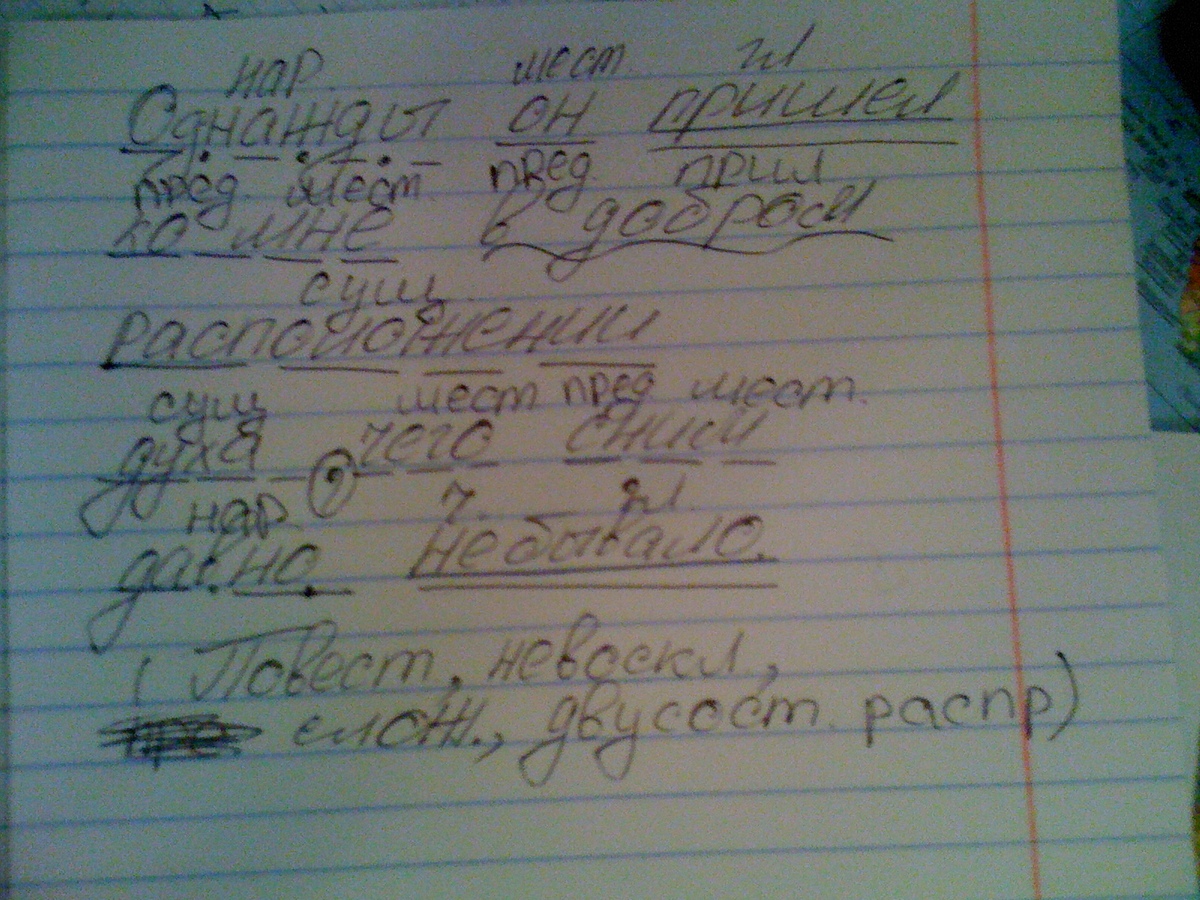 нар. мест. гл
Однажды он пришел
пред. мест. пред. прил
ко мне в добром
сущ.
расположении
сущ мест пред мест.
духа, чего с ним
нар. ч. гл.
давно не бывало.
(Повест, невоскл,
слож., двусост. распр)